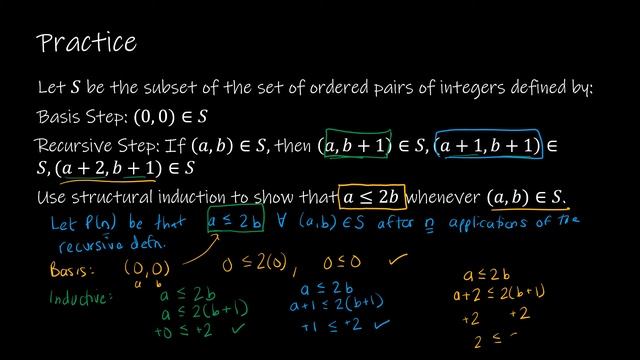 Practice
Let S be the subset of the set of ordered pairs of integers defined by:
Basis Step: (0, 0) ∈ S
Recursive Step: If (a, b) ∈ S, then (a, b + 1) ∈ S, (a + 1, b + 1) ∈
S, (a + 2, b + 1) ∈ S
Use structural induction to show that a ≤ 2b whenever (a, b) ∈ S.
Let P(n) be that a ≤ 2b ∀ (a,b) ∈ S after n applications of the
recursive defn.
Basis: (0,0) 0 ≤ 2(0), 0 ≤ 0 ✓
a b
Inductive:
a ≤ 2b
a ≤ 2(b+1)
+0 ≤ +2 ✓
a ≤ 2b
a+1 ≤ 2(b+1)
+1 ≤ +2 ✓
a ≤ 2b
a+2 ≤ 2(b+1)
+2 +2
2 ≤